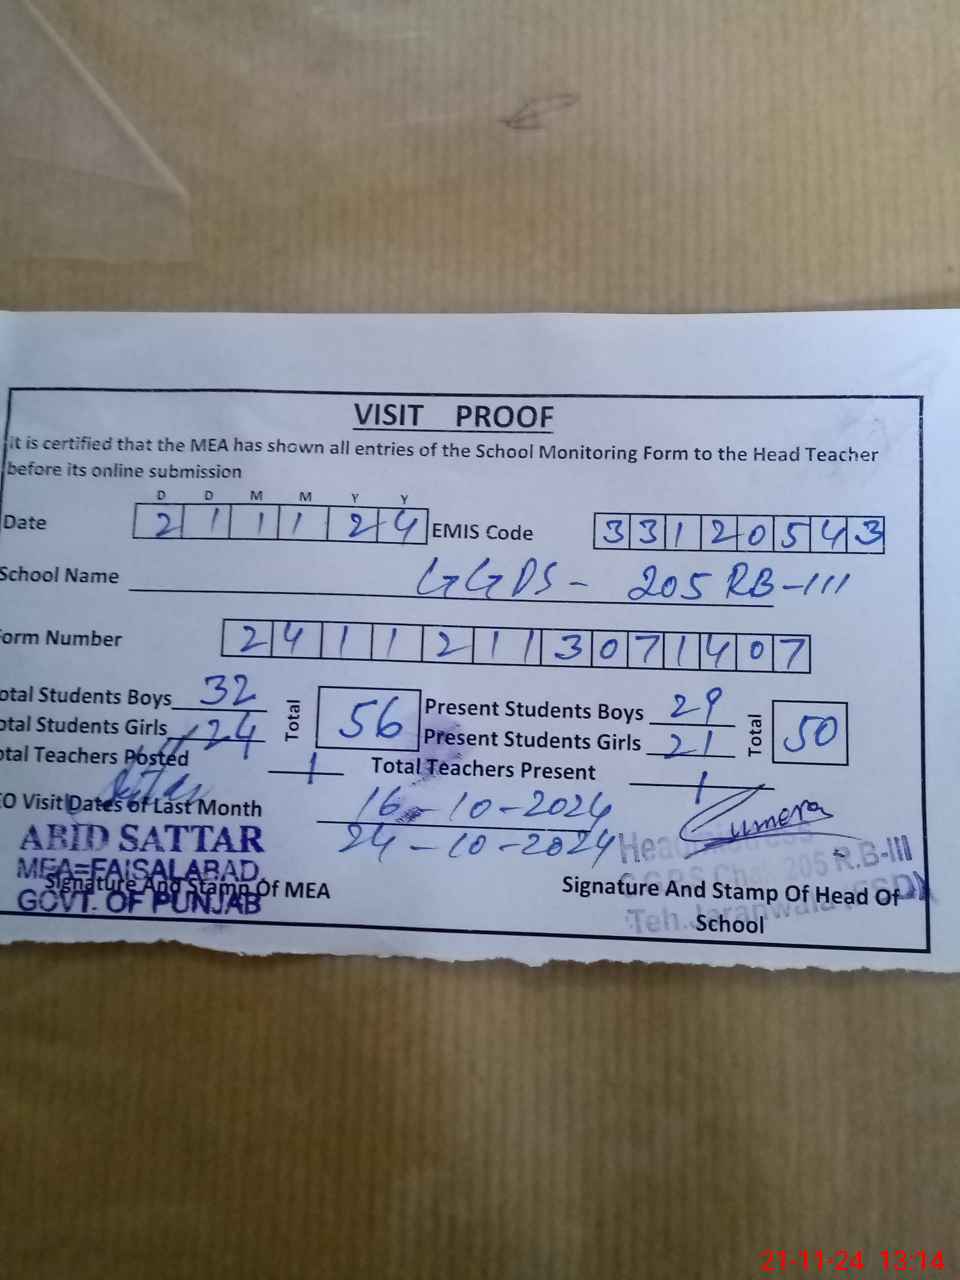 VISIT PROOF
It is certified that the MEA has shown all entries of the School Monitoring Form to the Head Teacher
before its online submission
D D M M Y Y
Date 2 1 1 1 2 4 EMIS Code 3 3 1 2 0 5 4 3
School Name GGPS - 205 RB-III
orm Number 2 4 1 1 2 1 1 3 0 7 1 4 0 7
otal Students Boys 32 Total 56 Present Students Boys 29 Total 50
otal Students Girls 24 Present Students Girls 21
otal Teachers Posted 1 Total Teachers Present 1
EO Visit Dates of Last Month 16-10-2024
24-10-2024
ABID SATTAR
MEA=FAISALABAD
GOVT. OF PUNJAB
Signature And Stamp Of MEA
Headmistress
205 R.B-III
Teh. Jaranwala
Signature And Stamp Of Head Of
School
21-11-24 13:14